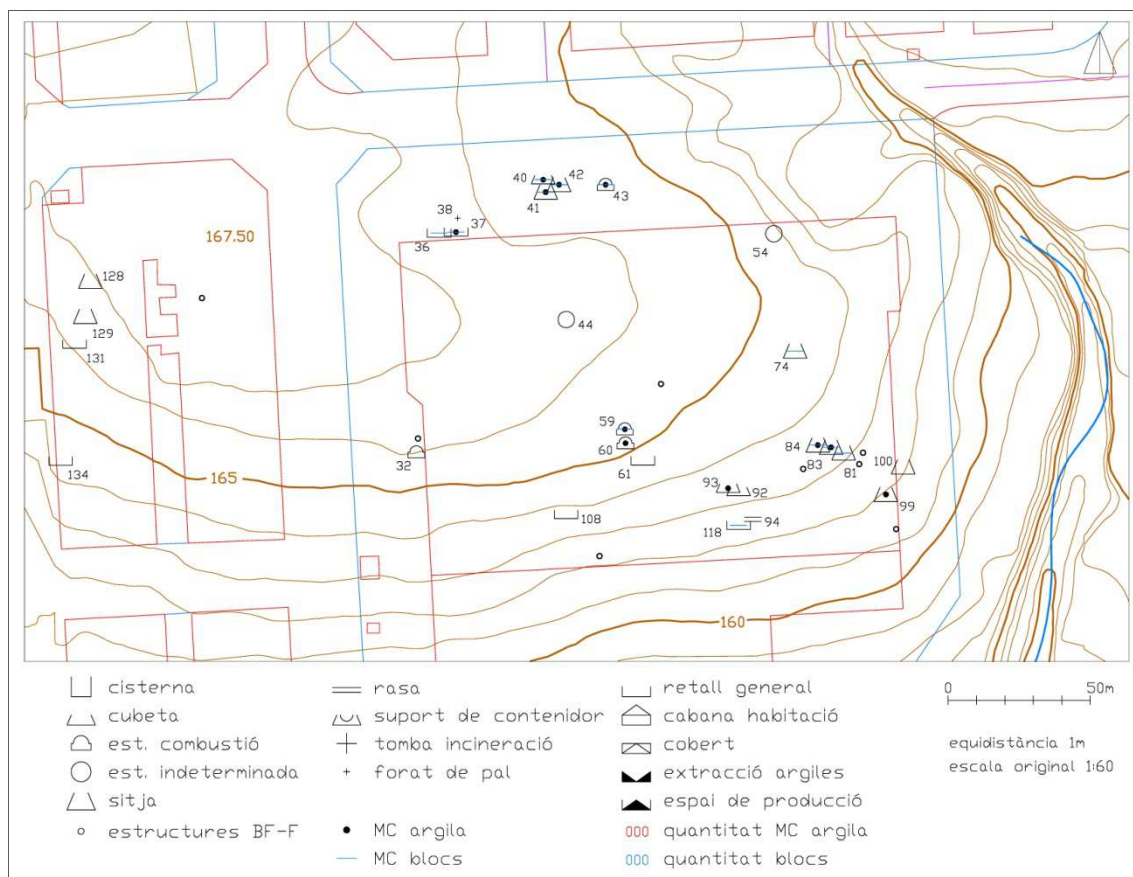 40
42
41
43
38
37
36
54
167.50
128
129
131
44
74
59
60
61
32
134
165
84
83
81
100
99
93
92
94
118
108
160
cisterna
cubeta
est. combustió
est. indeterminada
sitja
estructures BF-F
rasa
suport de contenidor
tomba incineració
forat de pal
MC argila
MC blocs
retall general
cabana habitació
cobert
extracció argiles
espai de producció
000 quantitat MC argila
000 quantitat blocs
0 50m
equidistància 1m
escala original 1:60